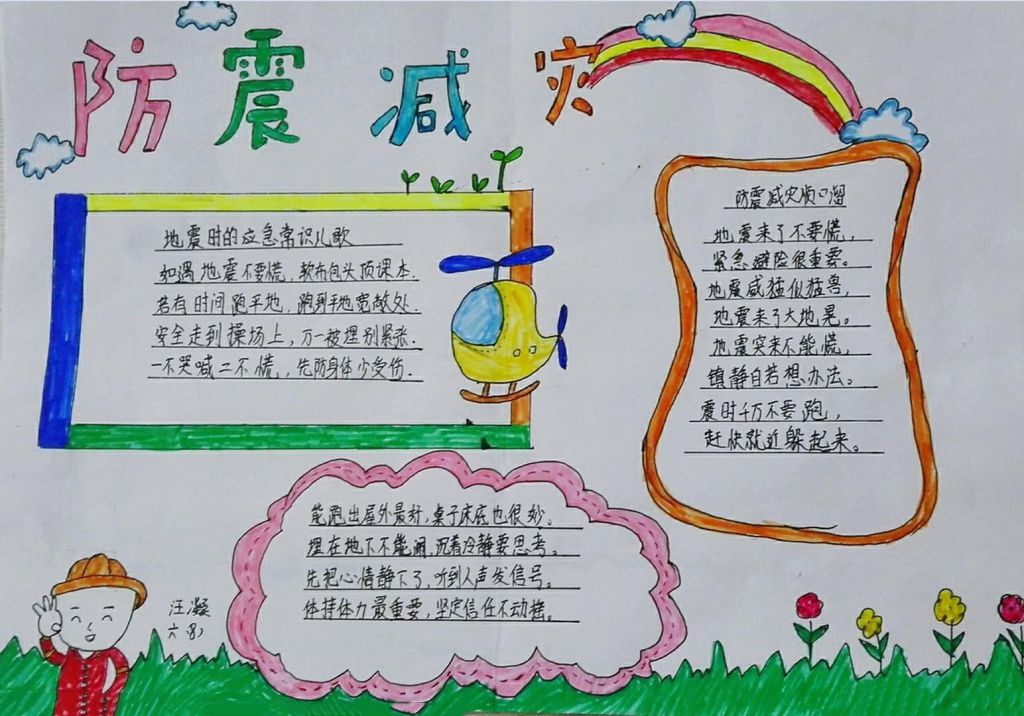 防震减灾
地震时的应急常识儿歌
如遇地震不要慌,软布包头顶课本.
若有时间跑平地,跑到平地宽敞处.
安全走到操场上,万一被埋别紧张.
一不哭喊二不慌,先防身体少受伤.
防震减灾顺口溜
地震来了不要慌,
紧急避险很重要。
地震威猛似猛兽,
地震来了大地晃。
地震突来不能慌,
镇静自若想办法。
震时千万不要跑,
赶快就近躲起来。
能跑出屋外最好,桌子床底也很妙。
埋在地下不能闹,沉着冷静要思考。
先把心情静下了,听到人声发信号。
体持体力最重要,坚定信任不动摇。
汪凝
六8)